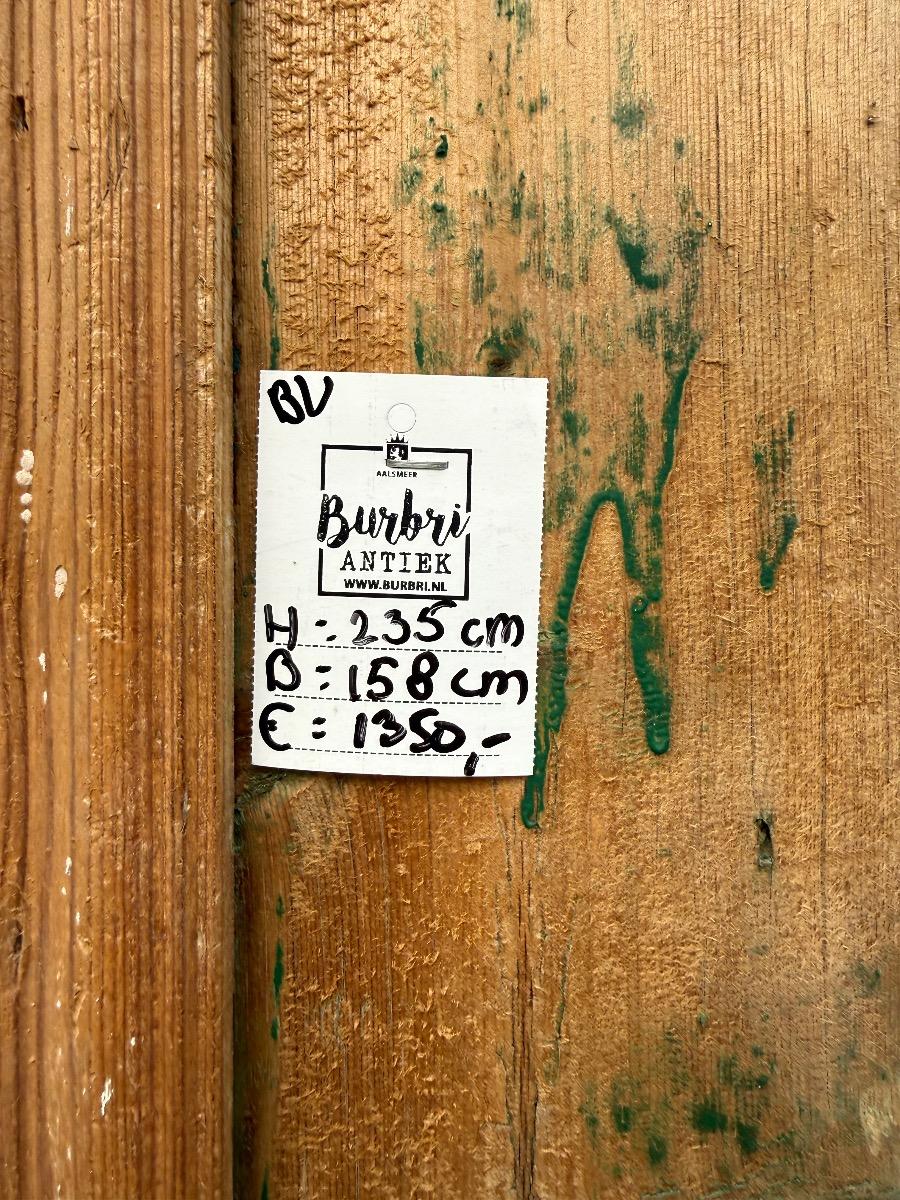 BV
AALSMEER
Burbri
ANTIEK
WWW.BURBRI.NL
H = 235 cm
B = 158 cm
€ = 1350,-